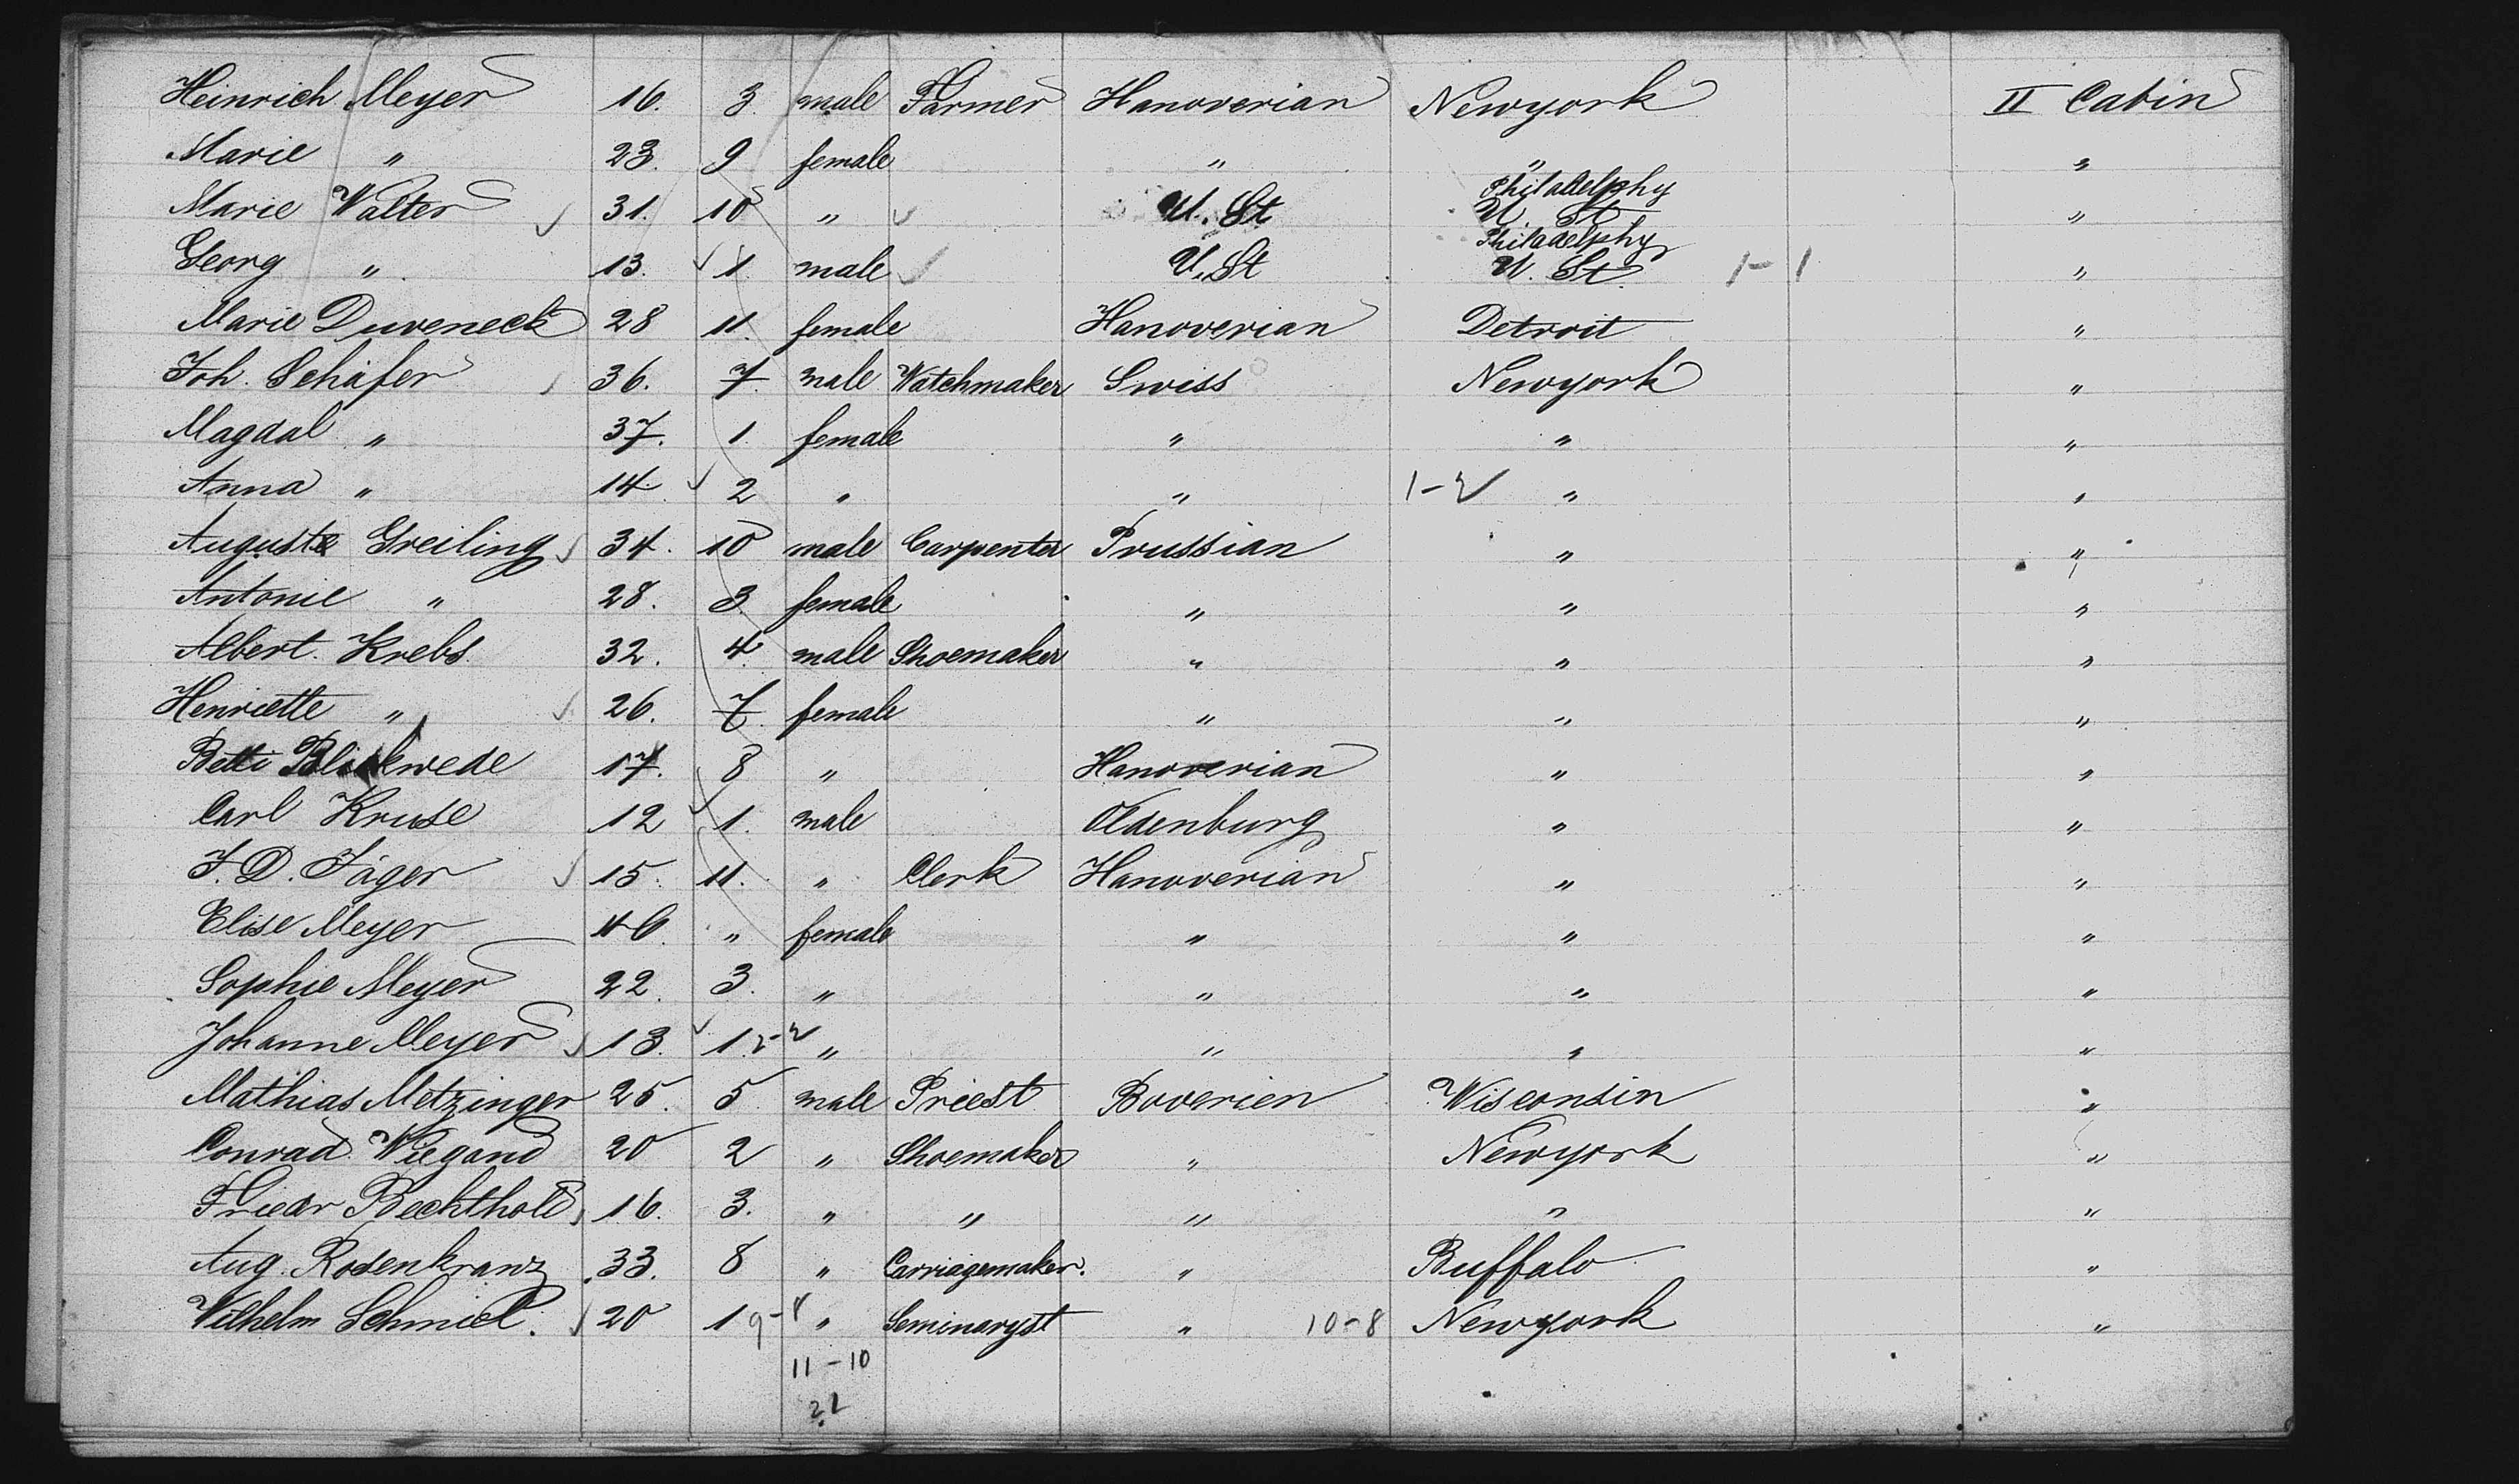 Heinrich Meyer 16. 3. male Farmer Hanoverian Newyork II Cabin
Marie " 23. 9 female " " "
Philadelphy
Marie Walter 31. 10 " U. St U. St "
Philadelphy
Georg " 13. 1. male U. St U. St. 1-1 "
Marie Duveneck 28 11. female Hanoverian Detroit "
Joh. Schäfer 36. 7. male Watchmaker Swiss Newyork "
Magdal " 37. 1. female " " "
Anna " 14. 2 " " 1-2 " "
Auguste Greiling 34. 10 male Carpenter Prussian " "
Antonie " 28. 3. female " " "
Albert. Krebs. 32. 4. male Shoemaker " " "
Henriette " 26. 7. female " " "
Betti 17. 8 " Hanoverian " "
Carl Kruse 12 1. male Oldenburg " "
J. D. Jäger 15. 11. " Clerk Hanoverian " "
Elise Meyer 46. " female " " "
Sophie Meyer 22. 3. " " " "
Johanne Meyer 13. 1. " " " "
Mathias Metzinger 25. 5. male Priest Boverien Wisconsin "
Conrad Wiegand 20 2 " Shoemaker " Newyork "
Friedr Bechthold 16. 3. " " " " "
Aug. Rosenkranz 33. 8 " Carriagemaker. " Buffalo "
Wilhelm Schmid. 20 1 9-8 " Seminaryst " 10-8 Newyork "
11-10